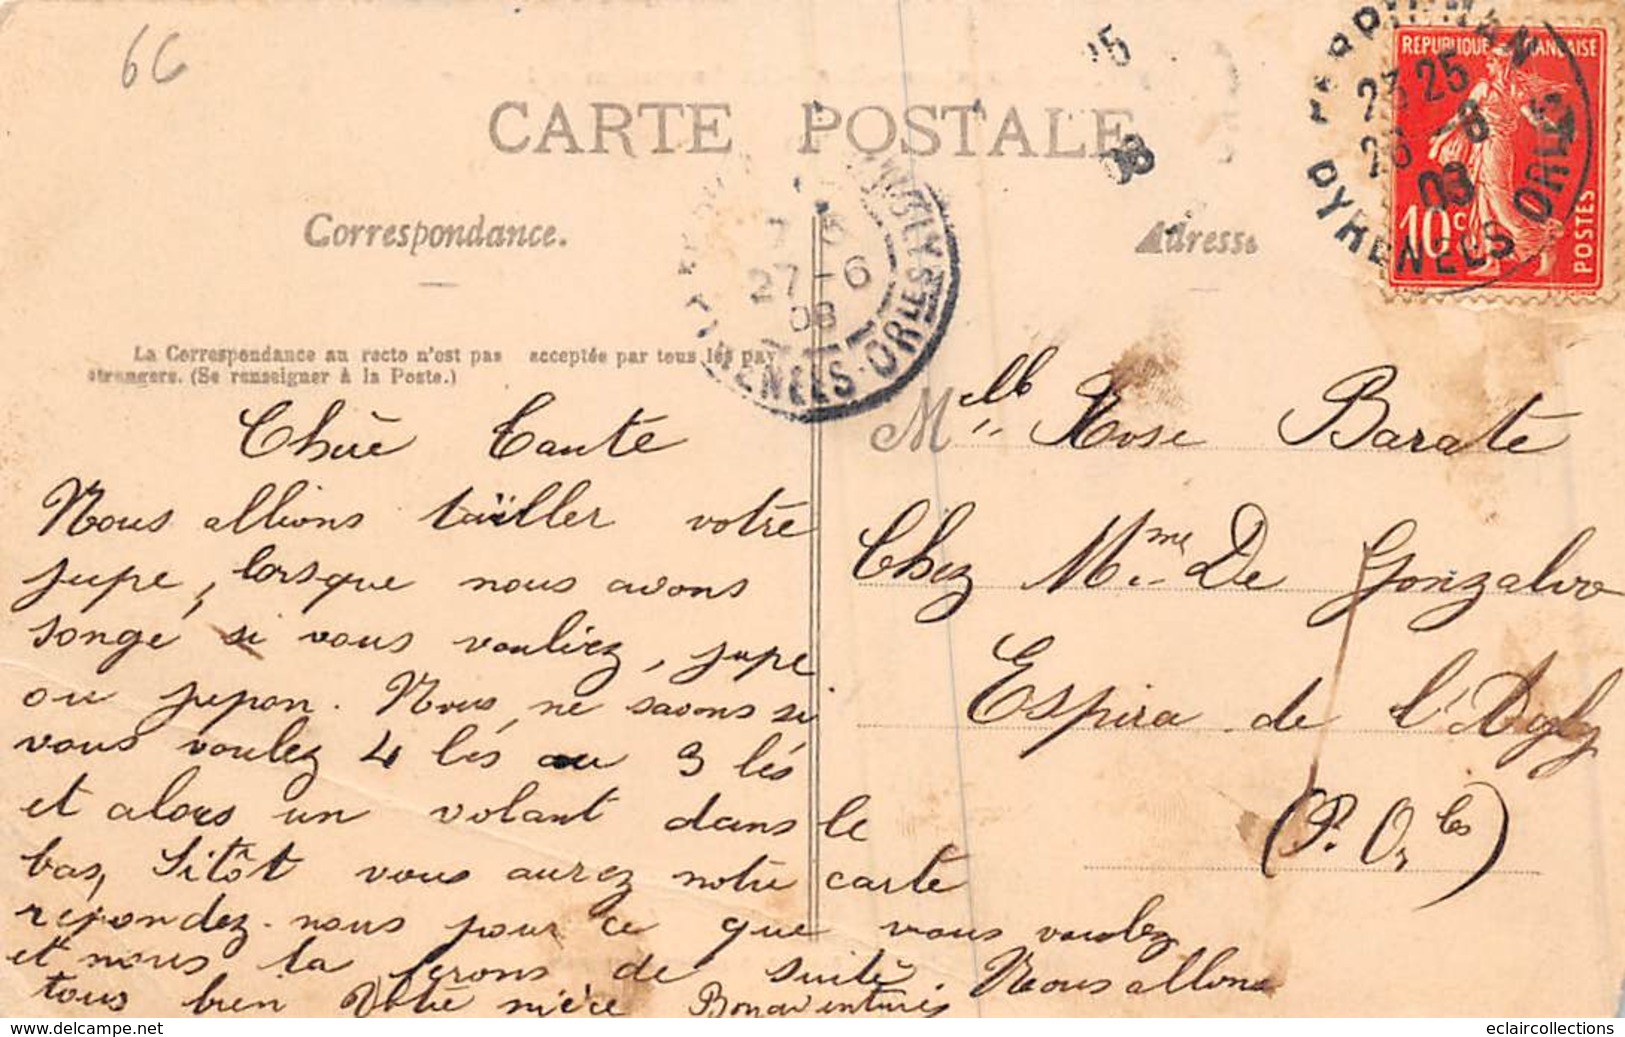 66
CARTE POSTALE
Correspondance.
Adresse
La Correspondance au recto n'est pas acceptée par tous les pays
étrangers. (Se renseigner à la Poste.)
REPUBLIQUE FRANÇAISE
10 c
POSTES
PERPIGNAN
23 25
26 - 6
08
PYRENEES ORLES
27 - 6
08
PYRENEES-ORLES
15
08
Chère Tante
Nous allions tailler votre
jupe, lorsque nous avons
songé si vous vouliez, jupe
ou jupon. Nous ne savons si
vous voulez 4 lés ou 3 lés
et alors un volant dans le
bas, Sitôt vous aurez notre carte
répondez-nous pour ce que vous voulez
et nous la ferons de suite Nous allons
tous bien Votre nièce Bonaventure
Melle Rose Barate
Chez Mme De Gonzalvo
Espira de l'Agly
(P. Orles)
eclaircollections
www.delcampe.net